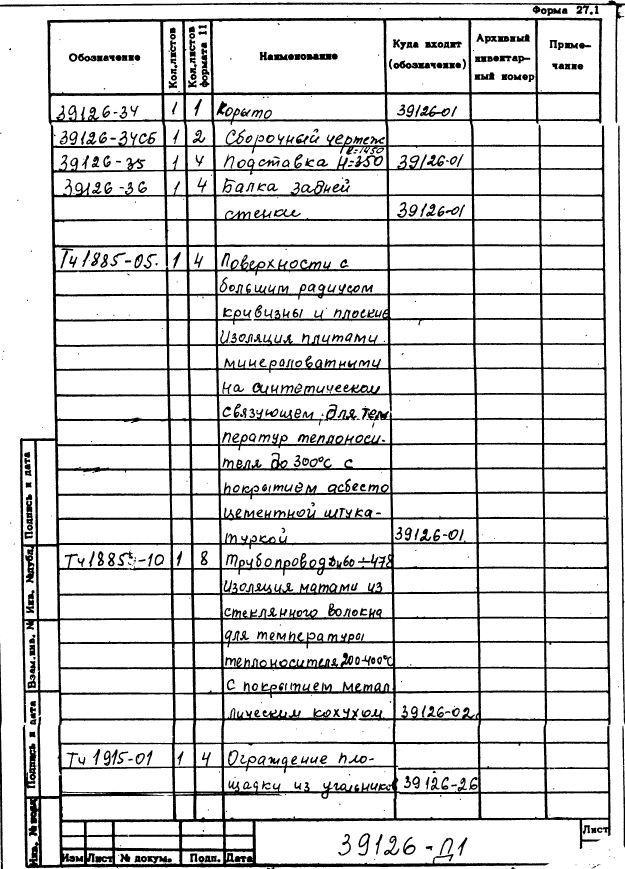 Форма 27.1
Обозначение Кол.листов Кол.листов формата 11 Наименование Куда входит (обозначение) Архивный инвентарный номер Приме-чание
39126-34 1 1 Корыто 39126-01
39126-34СБ 1 2 Сборочный чертеж
39126-35 1 4 Подставка H=350 39126-01
39126-36 1 4 Балка задней
стенки 39126-01
Тч1885-05. 1 4 Поверхности с
большим радиусом
кривизны и плоские
Изоляция плитами
минераловатными
на синтетическом
связующем, для тем
ператур теплоноси-
теля до 300°С с
покрытием асбесто
цементной штука-
туркой 39126-01
Тч1885-10 1 8 Трубопровод Ду60÷478
Изоляция матами из
стеклянного волокна
для температуры
теплоносителя 200-400°С
С покрытием метал
лическим кохухом 39126-02
Тч1915-01 1 4 Ограждение пло-
щадки из угольников 39126-26
Инв. № подл Подпись и дата Взам.инв. № Инв. №дубл. Подпись и дата
39126-Д1
Лист
Изм Лист № докум. Подп. Дата